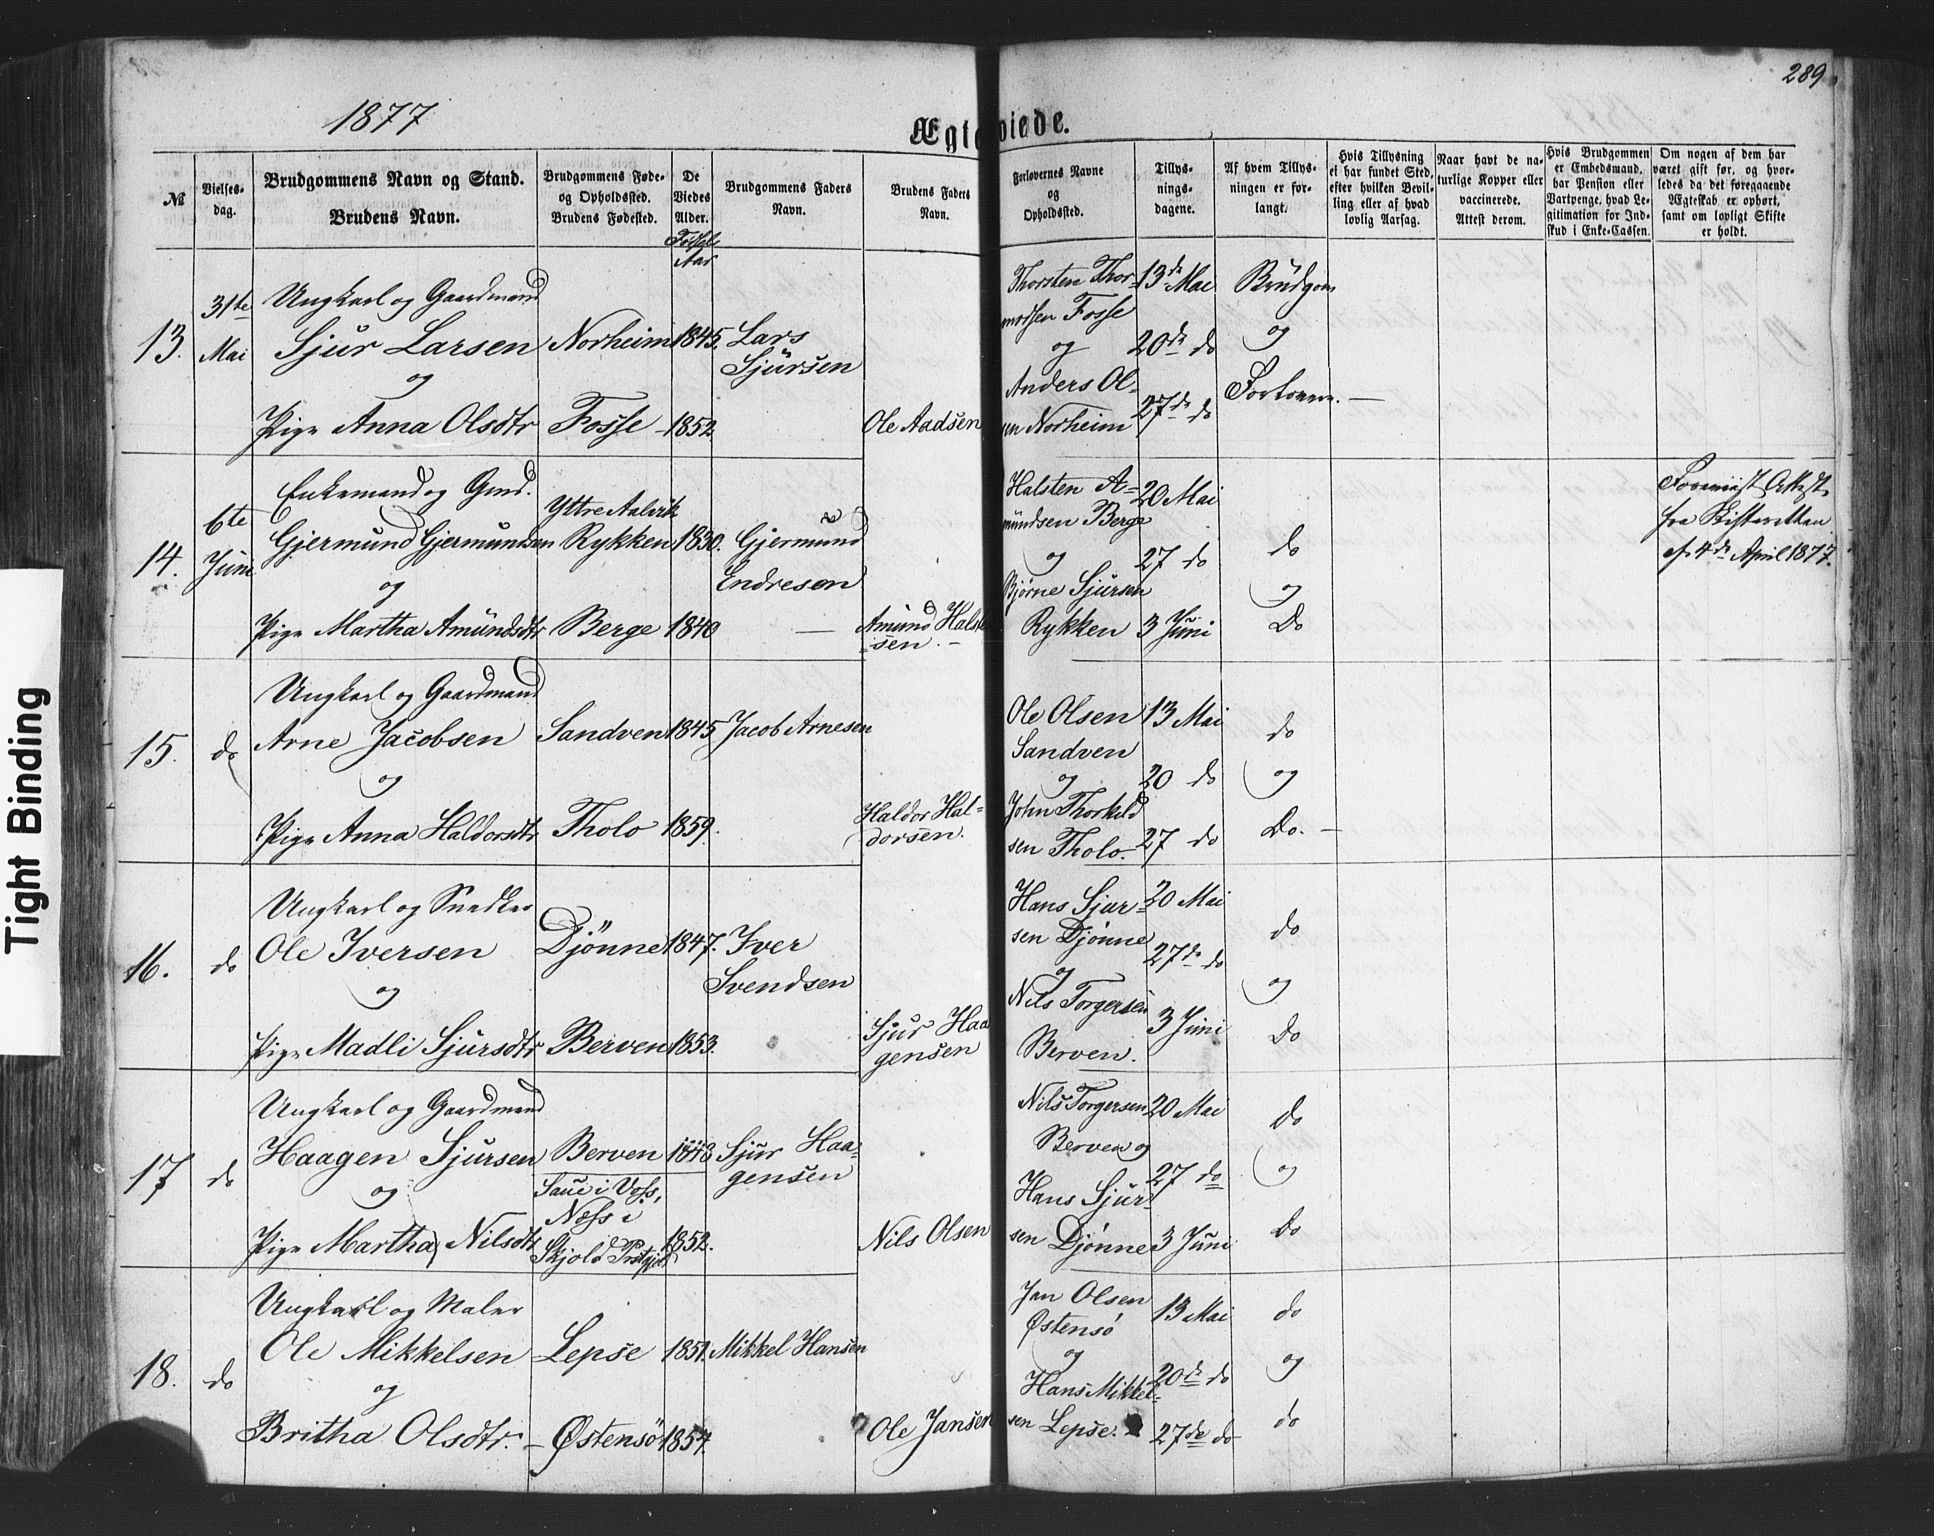 1877
289
Ægteviede.
Tight Binding
№
Vielses-
dag.
Brudgommens Navn og Stand.
Brudens Navn.
Brudgommens Føde-
og Opholdssted.
Brudens Fødested.
De
Viedes
Alder.
Aar
Brudgommens Faders
Navn.
Brudens Faders
Navn.
Forlovernes Navne
og
Opholdssted.
Tillys-
nings-
dagene.
Af hvem Tillys-
ningen er for-
langt.
Hvis Tillysning
ei har fundet Sted,
efter hvilken Bevil-
ling eller af hvad
lovlig Aarsag.
Naar havt de na-
turlige Kopper eller
vaccinerede.
Attest derom.
Hvis Brudgommen
er Embedsmand,
har Pension eller
Vartpenge, hvad Le-
gitimation for Ind-
skud i Enke-Cassen.
Om nogen af dem har
været gift før, og hvor-
ledes da det foregaaende
Ægteskab er ophørt,
samt om lovligt Skifte
er holdt.
13.
31te
Mai
Ungkarl og Gaardmand
Sjur Larsen
og
Pige Anna Olsdtr
Norheim
Fosse
1845.
1852
Lars
Sjursen
Ole Aadsen
Thorsten Thor-
modsen Fosse
og
Anders Ol-
sen Norheim
13de Mai
20de do
27de do
Brudgom
og
Forlovere.
14.
6te
Juni
Enkemand og Gmd.
Gjermund Gjermundsen
og
Pige Martha Amundsdtr
Yttre Aalvik
Rykken
Berge
1830.
1840
Gjermund
Endresen
Amund Hals-
sen.
Halsten A-
mundsen Berge
og
Bjørne Sjursen
Rykken
20 Mai
27 do
3 Juni
do
og
Do
Forevist Attest
fra Skifteretten
af 4de April 1877.
15.
do
Ungkarl og Gaardmand
Arne Jacobsen
og
Pige Anna Haldorsdtr
Sandven
Tholo
1845
1859.
Jacob Arnesen
Haldor Hal-
dorsen.
Ole Olsen
Sandven
og
John Thorkild
sen Tholo.
13 Mai
20 do
27 do
do
og
Do.
16.
do
Ungkarl og Snedker
Ole Iversen
og
Pige Madli Sjursdtr
Djönne
Berven
1847.
1853.
Iver
Svendsen
Sjur Haa
gensen
Hans Sjur-
sen Djönne
og
Nils Torgersen
Berven.
20 Mai
27de do
3 Juni
do
og
Do
17
do
Ungkarl og Gaardmand
Haagen Sjursen
og
Pige Martha Nilsdtr
Berven
Saue i Voss,
Næss i
Skjold Prstgjeld
1852.
Sjur Haa-
gensen
Nils Olsen
Nils Torgersen
Berven og
Hans Sjur
sen Djönne
20 Mai
27 do
3 Juni
do
og
Do
18.
do
Ungkarl og Maler
Ole Mikkelsen
og
Britha Olsdtr.
Lepse
Østensö
1851.
1857.
Mikkel Hansen
Ole Jansen
Jan Olsen
Østensö
og
Hans Mikkel-
sen Lepse.
13 Mai
20de do
27de do
do
og
do